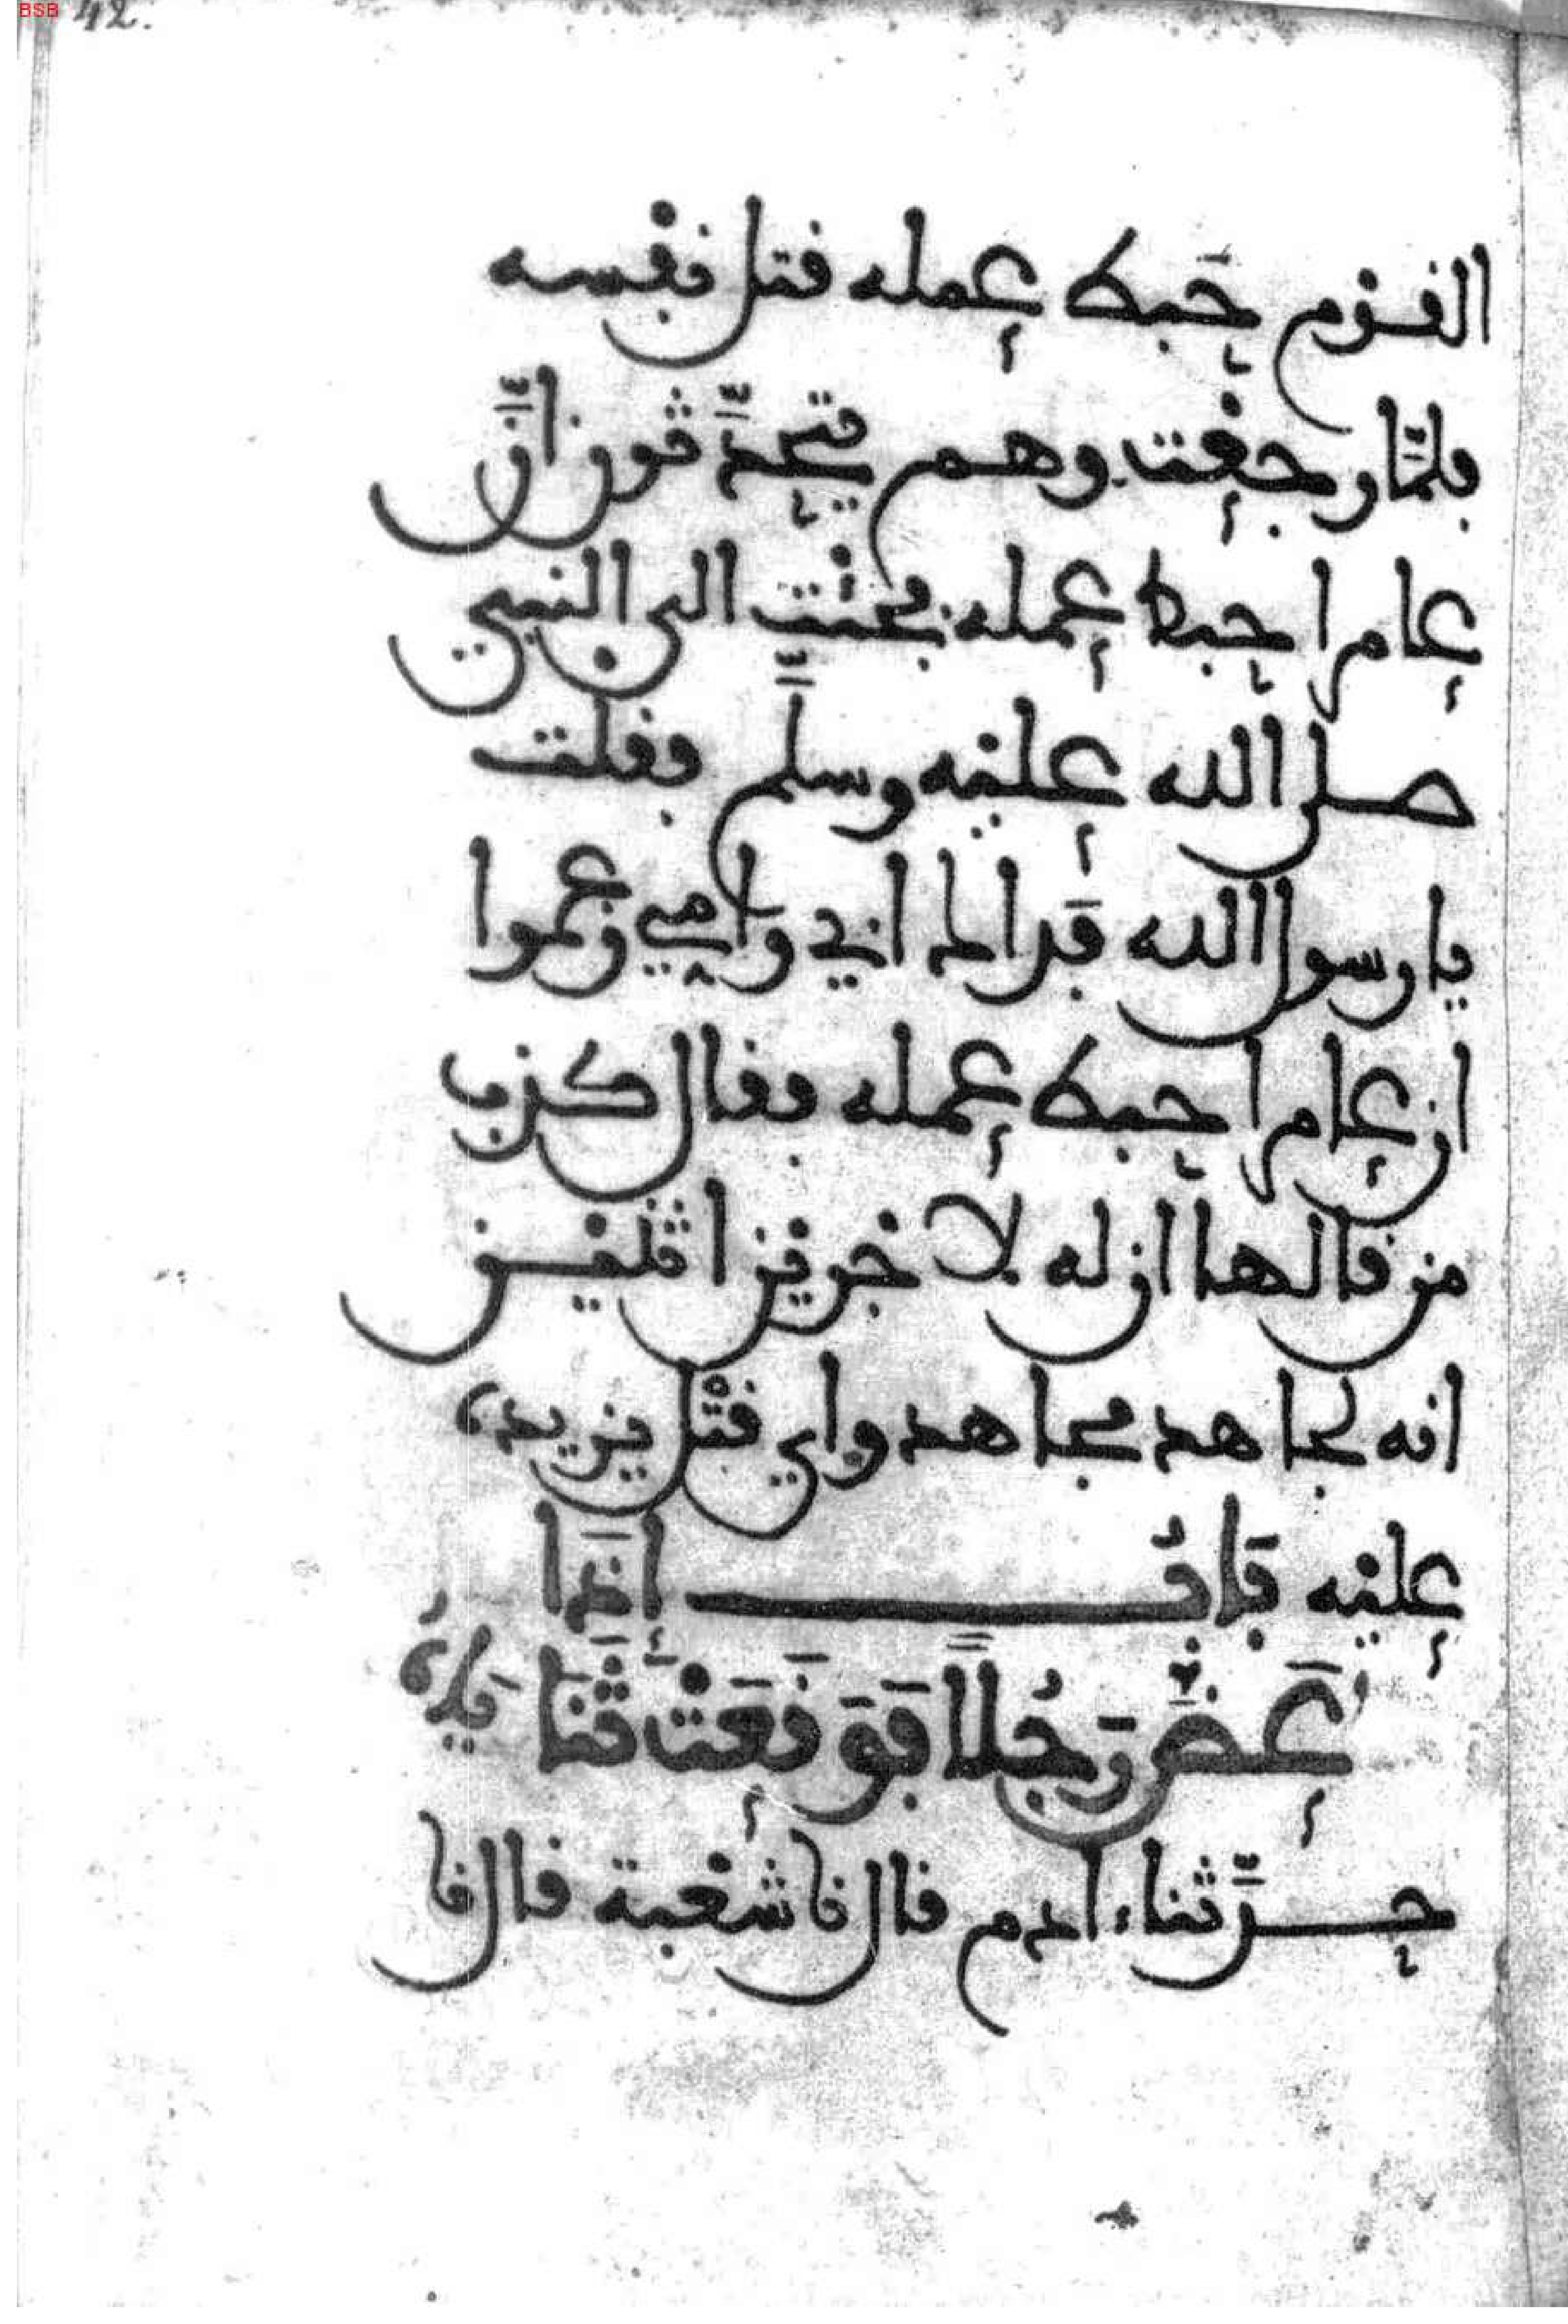 BSB 42.
القوم حَبط عمله قتل نفسه
فلمَّا رجعت وهم يتحدَّثون انَّ
عامرا حبط عمله فجئت الى النبي
صلى الله عليه وسلَّم فقلت
يا رسول الله فَداك ابي وَامي زعموا
ان عامرا حبط عمله فقال كذب
من قالها ان له لاجرين اثنين
انه لجاهد مجاهد واي قتل يزيده
عليه بَابُ إِذَا
عَضَّ رَجُلاً فَوَقَعَتْ ثَنَايَاهُ
حدَّثنا ادم قال نا شعبة قال نا